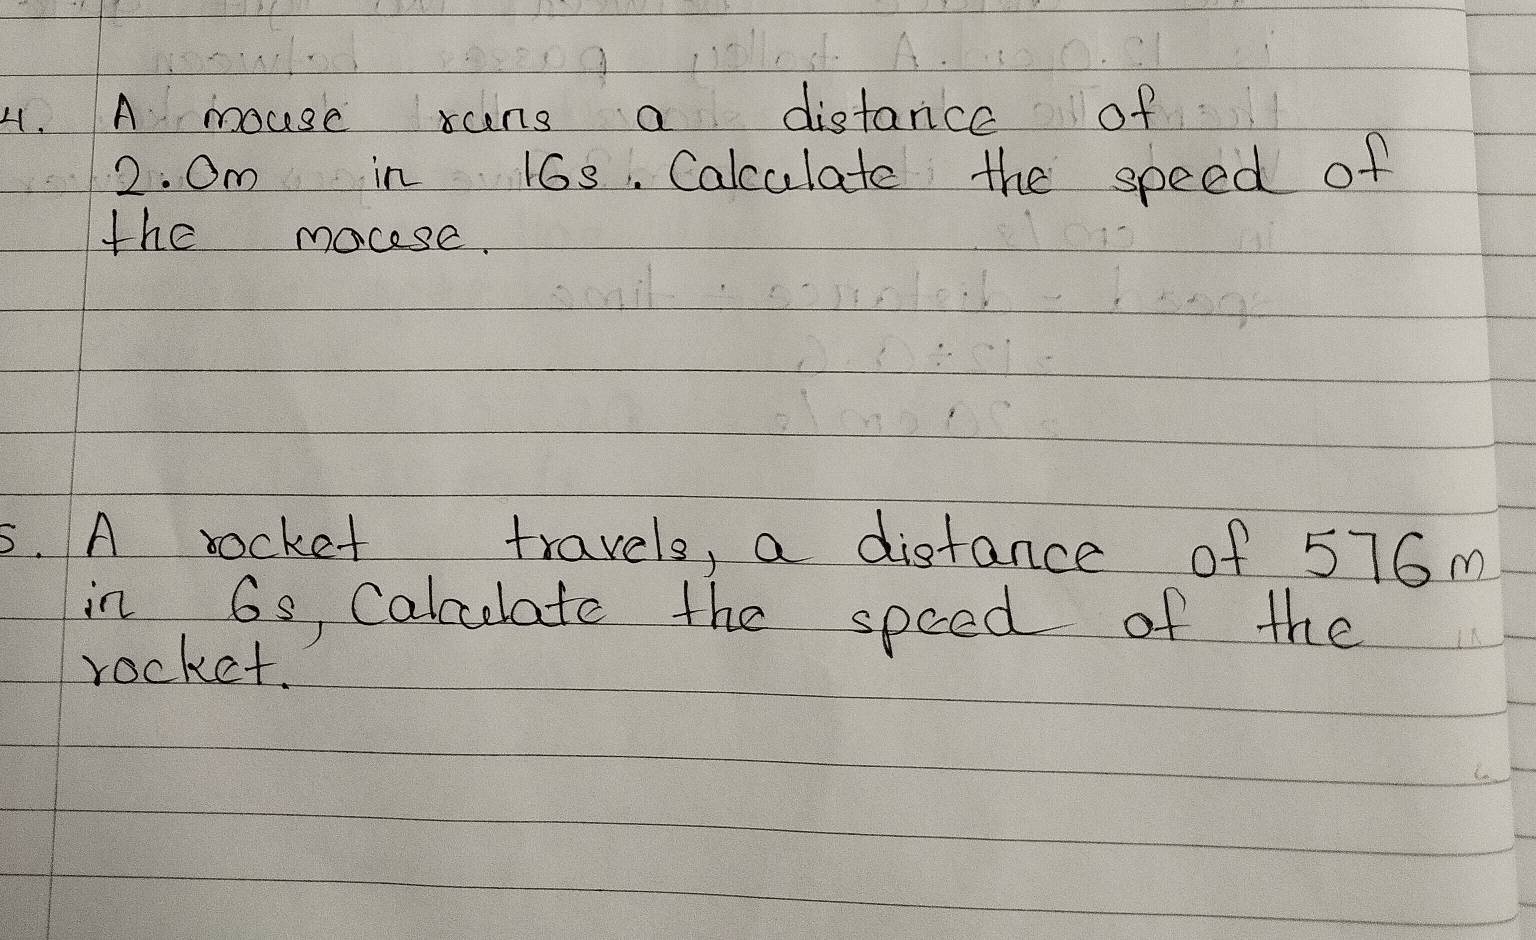 4. A mouse runs a distance of
2.0m in 16s. Calculate the speed of
the mouse.
5. A rocket travels, a distance of 576m
in 6s, Calculate the speed of the
rocket.